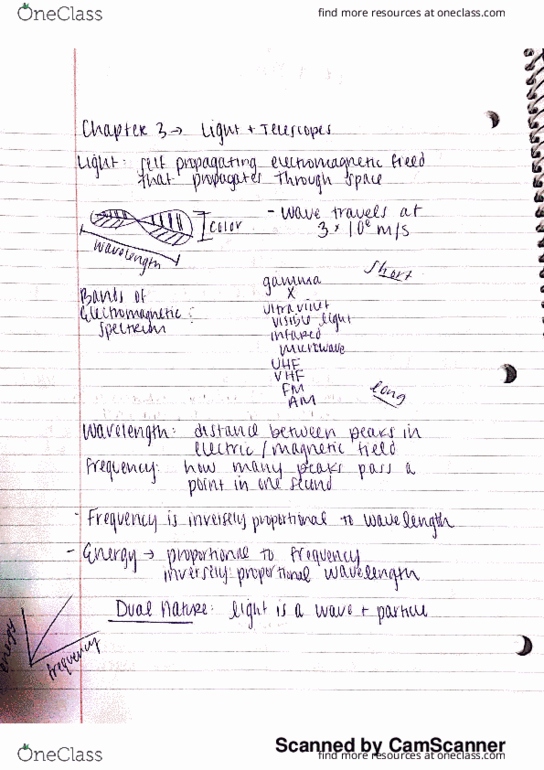 OneClass
find more resources at oneclass.com
Chapter 3 → Light + Telescopes
Light: self propagating electromagnetic field
that propagates through space
- wave travels at
3 × 10⁸ m/s
color
wavelength
short
Bands of
Electromagnetic:
Spectrum
gamma
X
ultraviolet
visible light
infared
microwave
UHF
VHF
FM
AM
long
Wavelength: distance between peaks in
electric/magnetic field
Frequency: how many peaks pass a
point in one second
- Frequency is inversely proportional to wavelength
- Energy → proportional to frequency
inversely proportional wavelength
Dual Nature: light is a wave + particle
energy
frequency
Scanned by CamScanner
OneClass
find more resources at oneclass.com